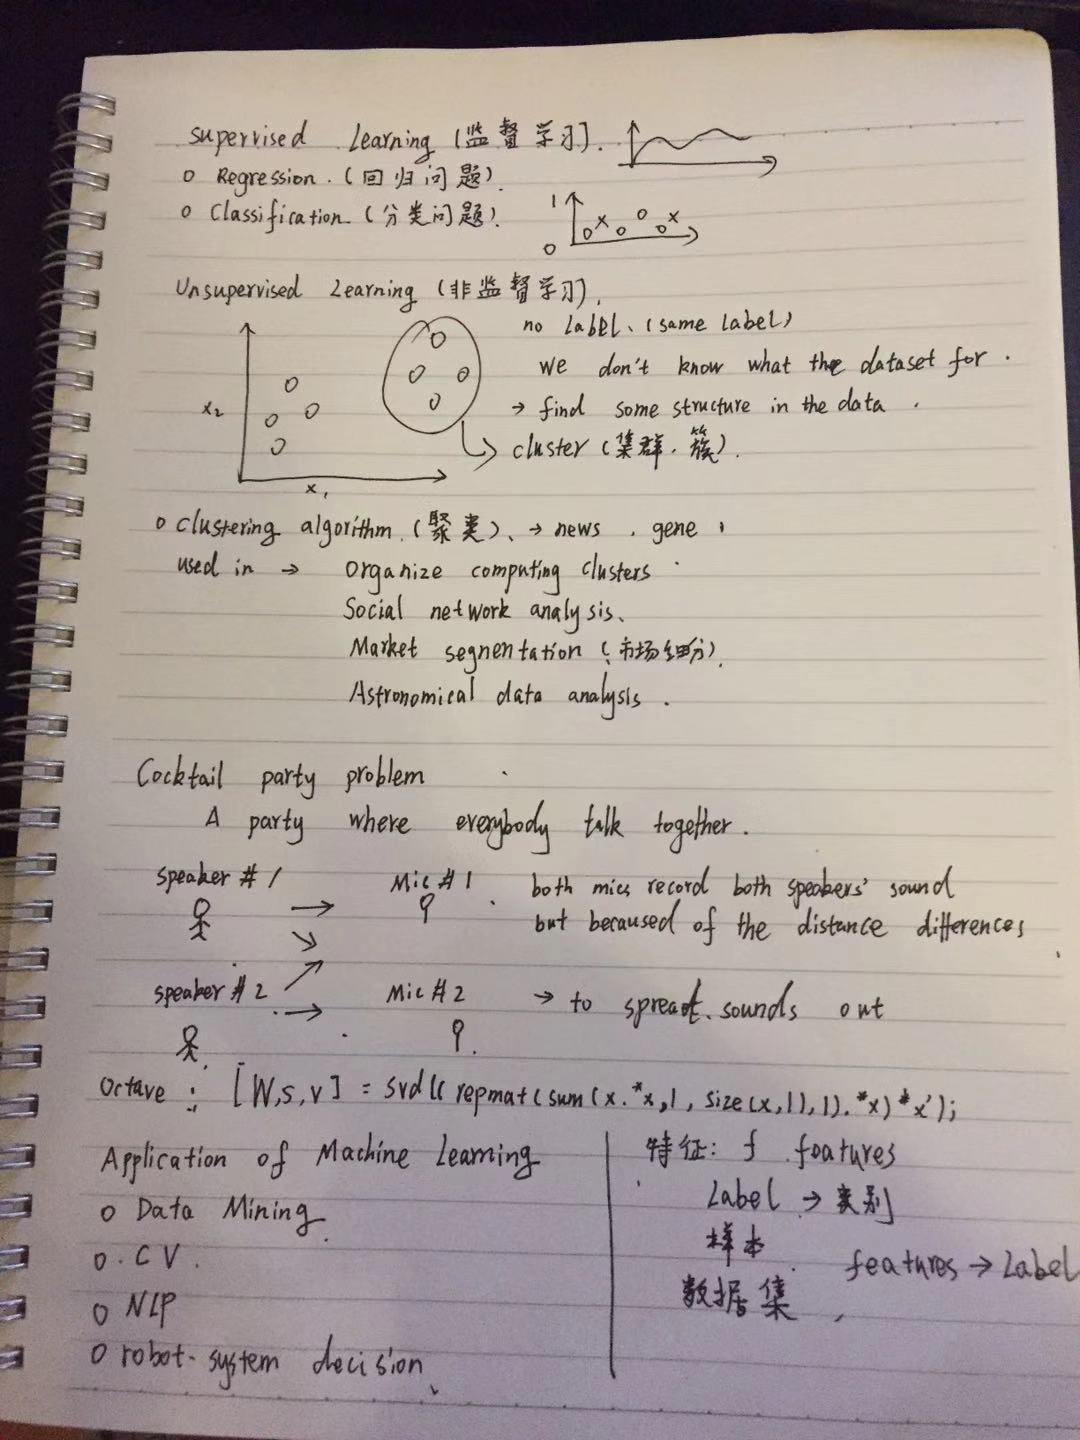 supervised Learning (监督学习).
o Regression. (回归问题).
o Classification (分类问题).
1
o
Unsupervised Learning (非监督学习).
no Label. (same Label)
we don't know what the dataset for.
→ find some structure in the data.
cluster (集群. 簇).
x2
x1
o clustering algorithm. (聚类). → news, gene,
used in → organize computing clusters.
Social network analysis.
Market segnentation (市场细分).
Astronomical data analysis.
Cocktail party problem
A party where everybody talk together.
speaker #1 Mic #1
both mics record both speakers' sound
but becaused of the distance differences
speaker #2 Mic #2 → to spreat sounds out
Octave: [W,s,v] = svd((repmat(sum(x.*x,1, size(x,1),1).*x)*x');
Application of Machine Learning
o Data Mining
o CV.
o NLP
o robot-system decision
特征: f features
Label → 类别
样本
features → Label
数据集